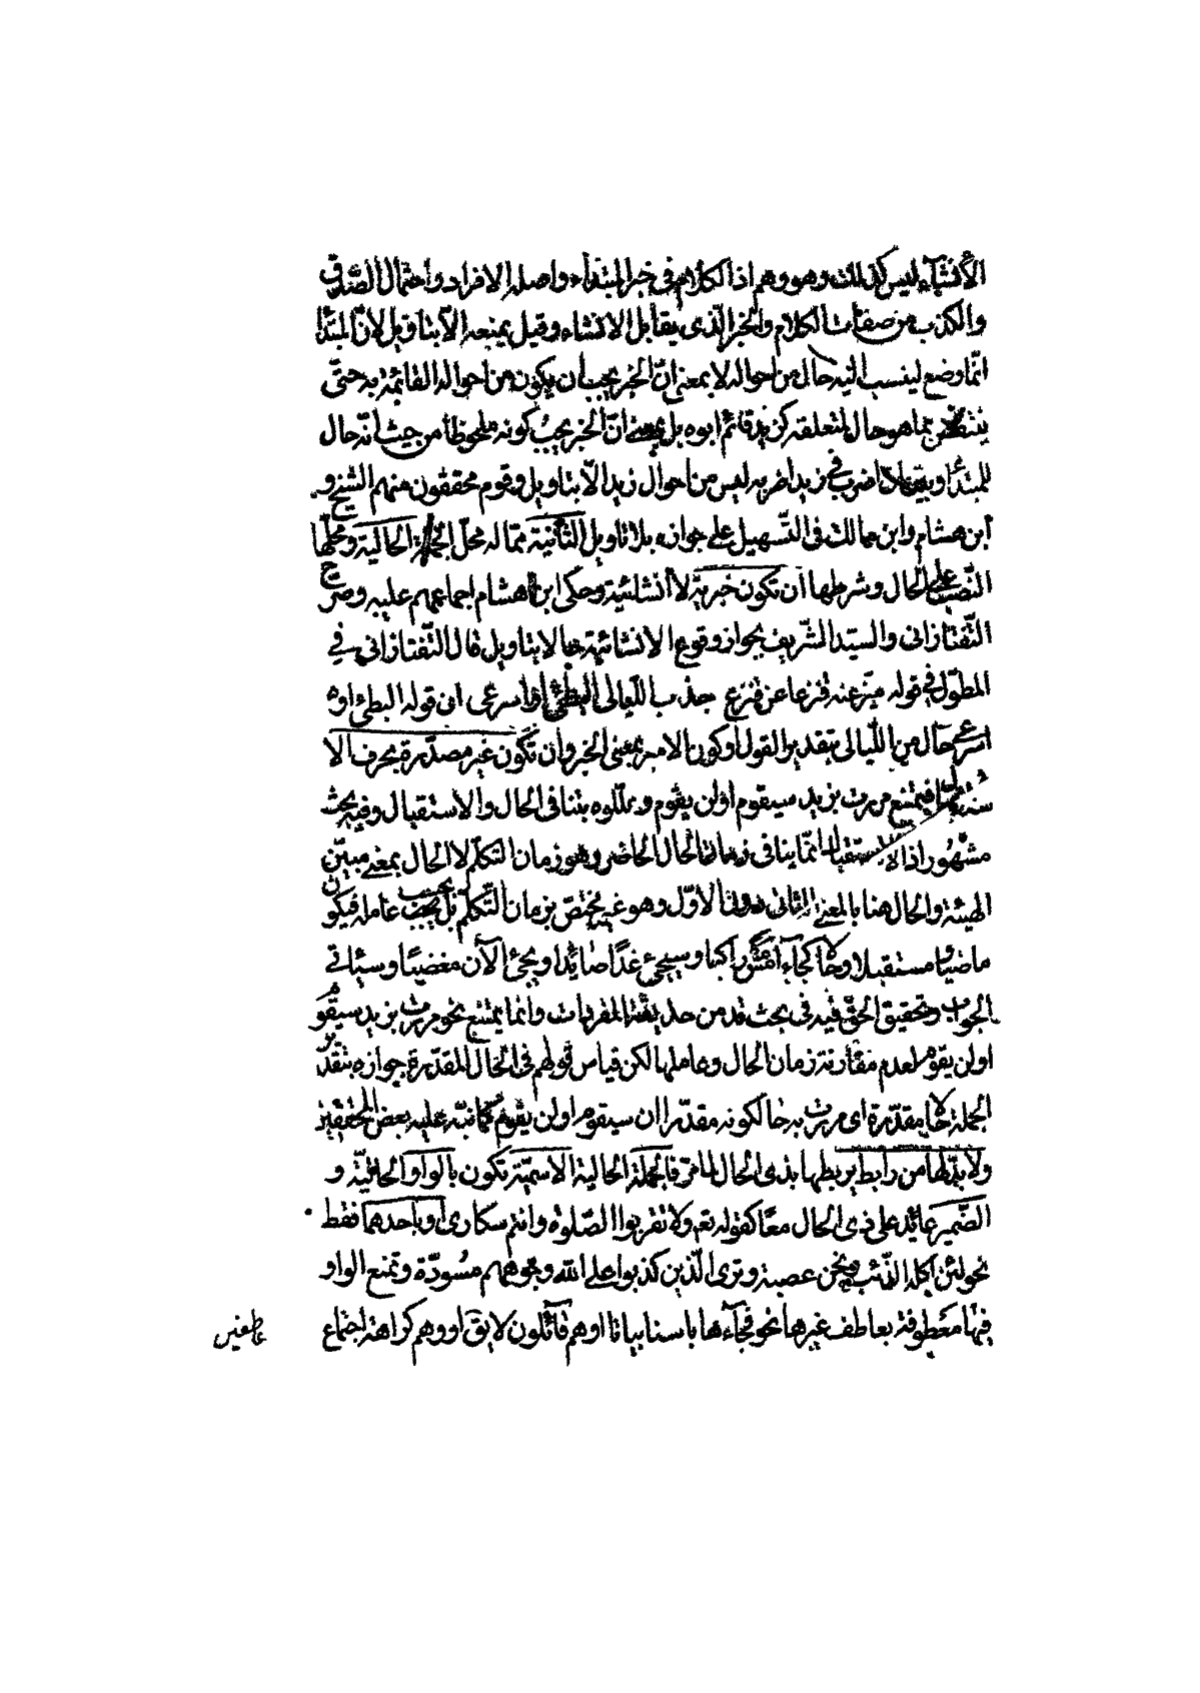 الأنشاء ليس كذلك وهو وهم اذ الكلام فى خبر المبتداء واصله الافراد واحتمال الصّدق
والكذب من صفات الكلام والخبر الّذى يقابل الانشاء وقيل يمنعه الّا بتاويل لانّ المبتدأ
انّما وضع لينسب اليه حال من احواله لا بمعنى انّ الخبر يجب ان يكون من احواله القائمة به حتّى
ينتقض بما هو حال لمتعلقه كزيد قائم ابوه بل بمعنى انّ الخبر يجب كونه ملحوظا من حيث انّه حال
للمبتدأ اضرب فى زيد اضربه ليس من احوال زيد الّا بتاويل وقوم محققون منهم الشيخ و
ابن هشام وابن مالك فى التّسهيل على جوازه بلا تاويل الثّانية ممّا له محلّ الجملة الحالية ومحلّها
النّصب على الحال وشرطها ان تكون خبريّة لا انشائية وحكى ابن هشام اجماعهم عليه وصرّح
التّفتازانى والسيّد الشّريف بجواز وقوع الانشائية حالا بتاويل قال التّفتازانى فى
المطوّل فى قوله ميّز عنه قنزعا عن قنزع جذب اللّيالى ابطئى او اسرعى ان قوله ابطئ او
اسرعى حال من اللّيالى بتقدير القول او كون الامر بمعنى الخبر وان تكون غير مصدّرة بحرف الا
ستقبال فيمتنع مررت بزيد سيقوم او لن يقوم وعلّلوه بتنافى الحال والاستقبال وفيه بحث
مشهور اذ الاستقبال انّما ينافى زمان الحال الحاضر وهو زمان التكلّم لا الحال بمعنى مبيّن
الهيئة والحال هنا بالمعنى الثانى دون الاوّل وهو غير مختصّ بزمان التّكلّم بل بحسب عامله فيكون
ماضيا ومستقبلا وحالا كجاء امس راكبا وسيجئ غدًا صائدا ويجئ الآن مغضبًا وسيأتى
الجواب وتحقيق الحقّ فيه فى بحث قد من حديقة المفردات وانما يمتنع نحو مررت بزيد سيقوم
او لن يقوم لعدم مقارنة زمان الحال وعاملها لكن قياس قولهم فى الحال المقدّرة جوازه بتقدير
الجملة حالا مقدّرة اى مررت به حالكونه مقدّرا ان سيقوم او لن يقوم كما نبّه عليه بعض المحققين
ولا بدّ لها من رابط يربطها بذى الحال لما مرّ فالجملة الحالية الاسميّة تكون بالواو الحاليّة و
الضّمير عائد على ذى الحال معًا كقوله تع ولا تقربوا الصّلوة وانتم سكارى او باحدهما فقط
نحو لئن اكله الذّئب ونحن عصبة وترى الّذين كذبوا على اللّه وجوههم مسودّة وتمنع الواو
فيها معطوفة بعاطف غيرها نحو فجآءها باسنا بياتا او هم قآئلون لا يق او وهم كراهة اجتماع
عاطفين